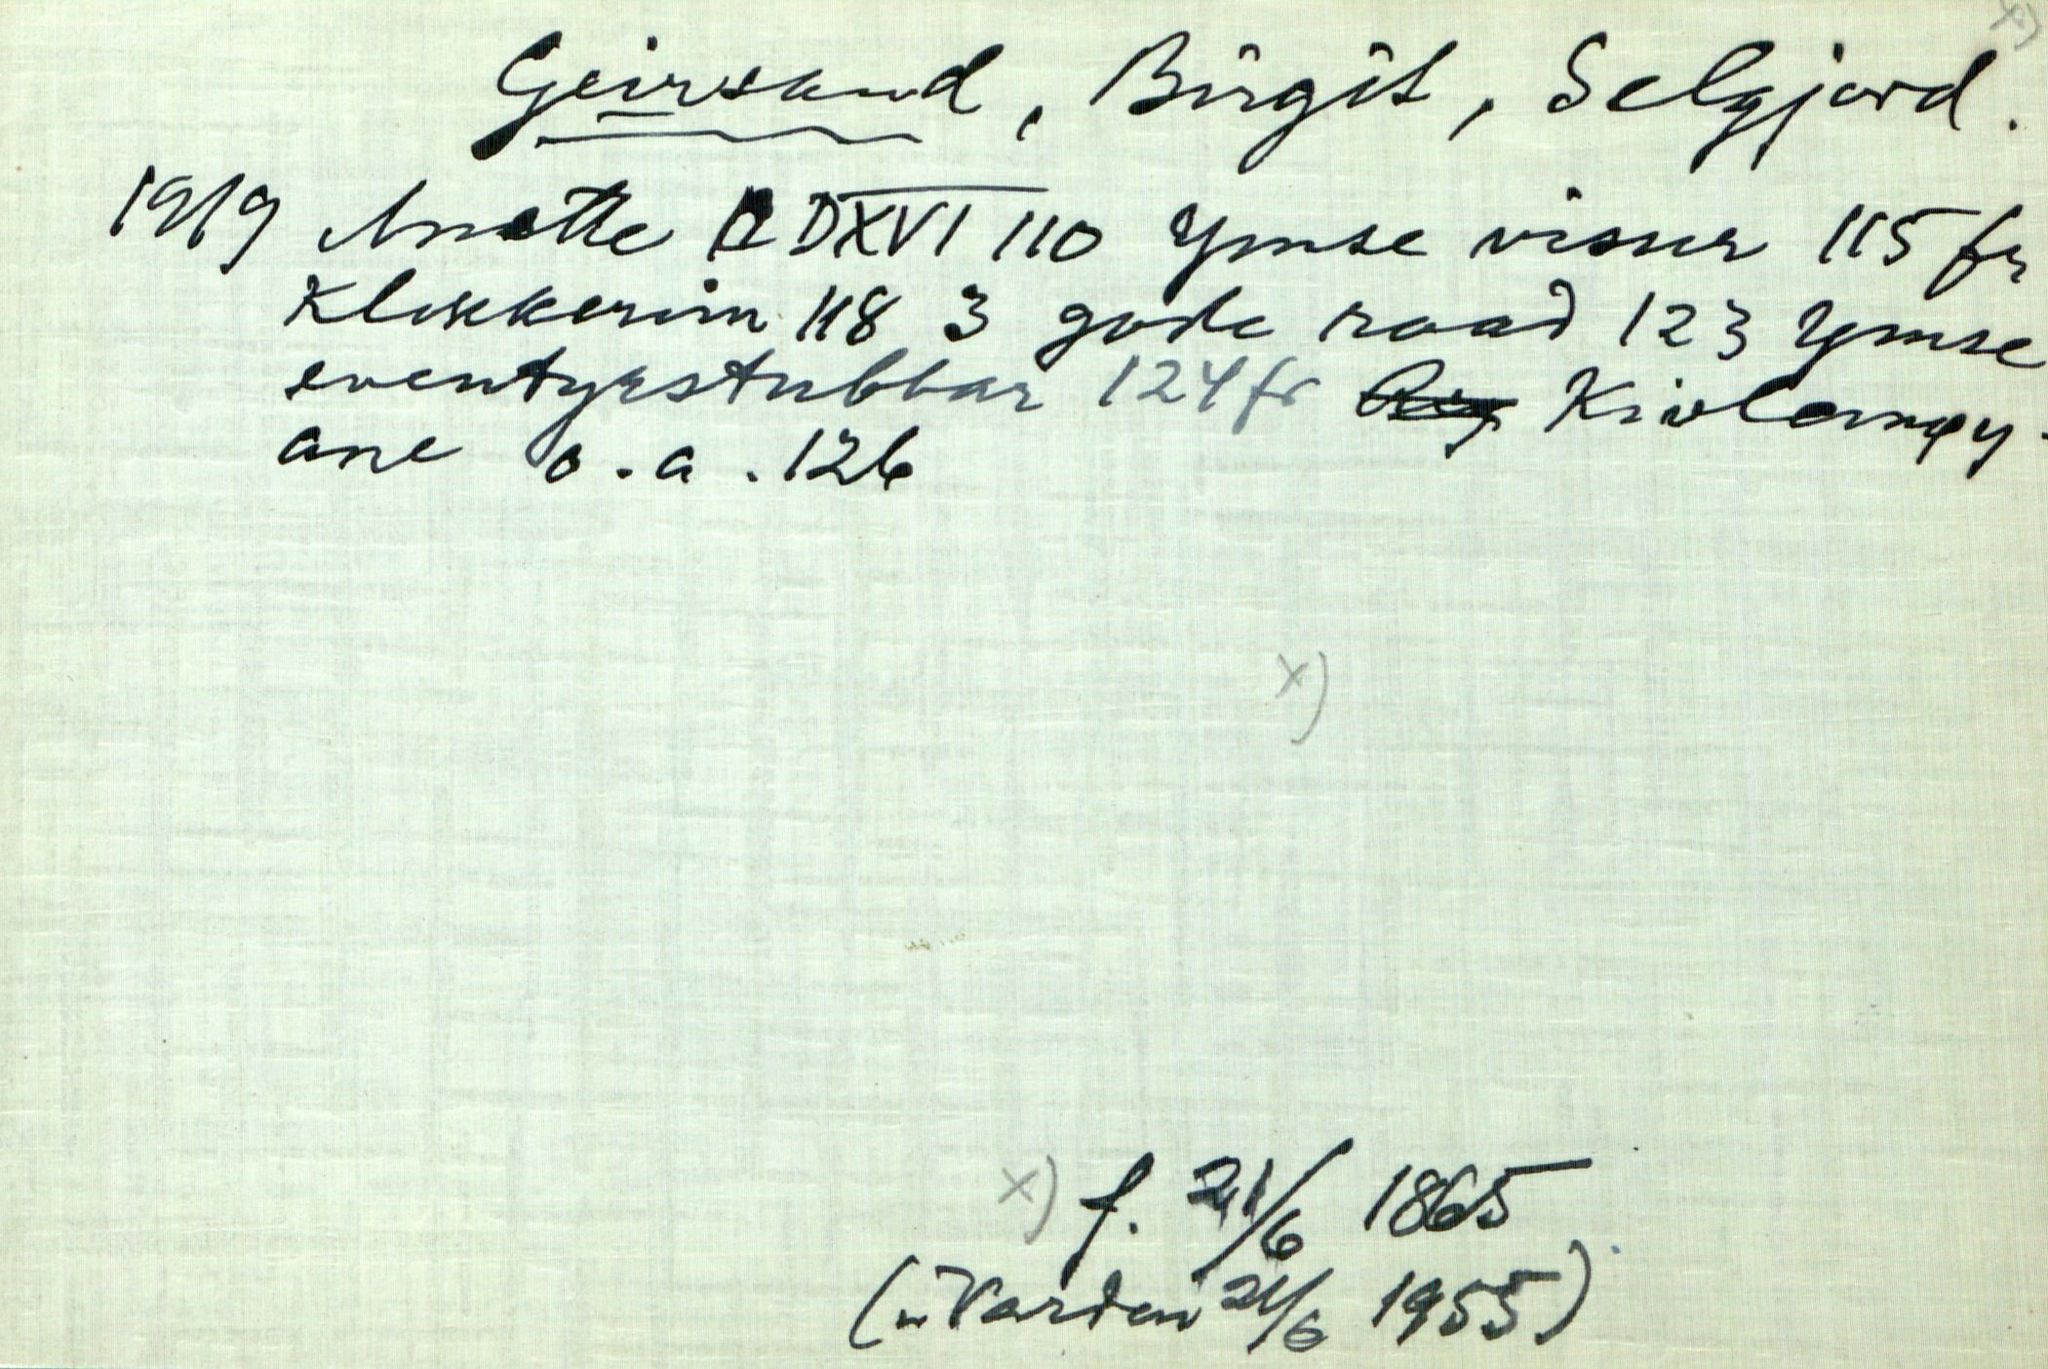 x)
Geirsund, Birgit, Selgjord.
1919 DXVI 110 Ymse visur 115 fr
Klokkerim 118 3 gode raad 123 Ymse
eventyrstubbar 124 fr Kivlemøy-
ane o.a. 126
x)
x) f. 21/6 1865
("Varden" 21/6 1955)